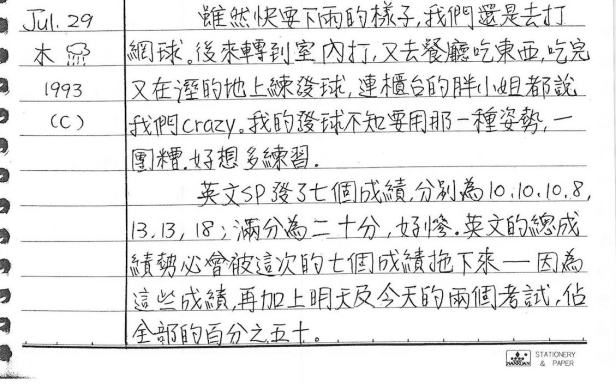 Jul. 29
木
1993
(C)
雖然快要下雨的樣子,我們還是去打
網球。後來轉到室內打,又去餐廳吃東西,吃完
又在溼的地上練發球,連櫃台的胖小姐都說
我們crazy。我的發球不知要用那一種姿勢,一
團糟.好想多練習.
英文SP發了七個成績,分別為10.10.10.8,
13.13,18;滿分為二十分,好慘.英文的總成
績勢必會被這次的七個成績拖下來—因為
這些成績,再加上明天及今天的兩個考試,佔
全部的百分之五十。
STATIONERY
& PAPER